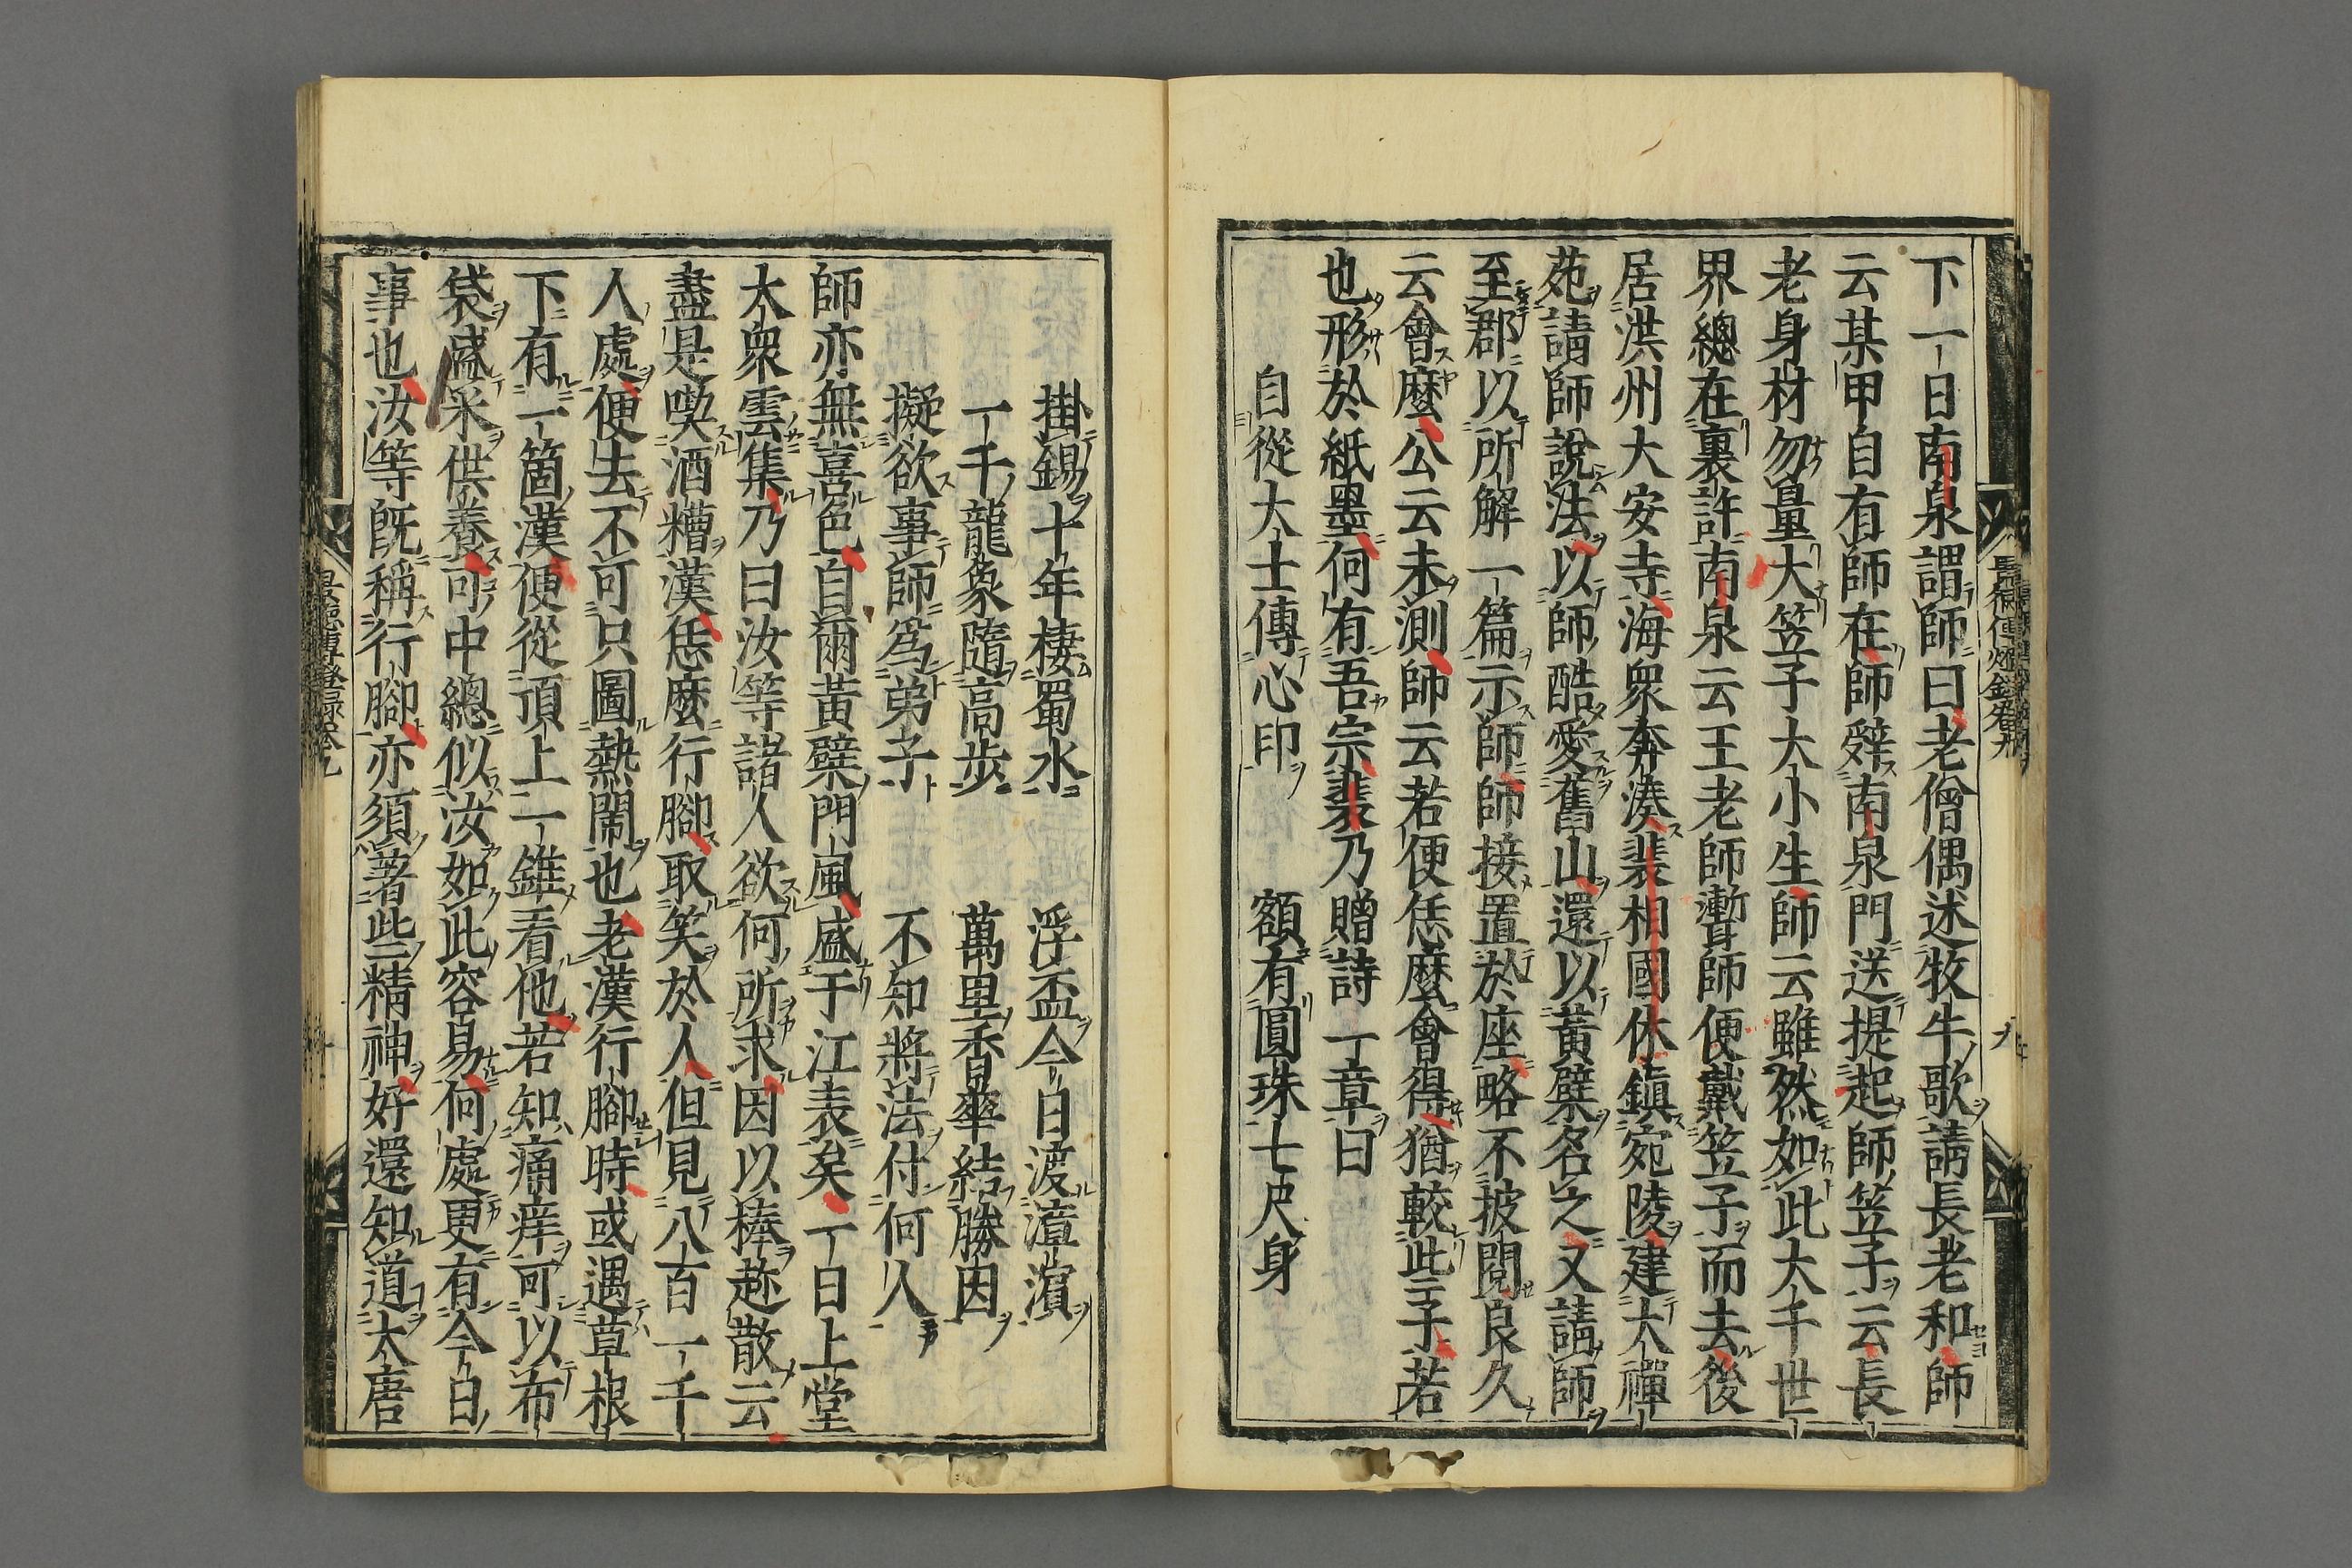 下一日南泉謂師曰老僧偶述牧牛歌請長老和師
云某甲自有師在師辭南泉門送提起師笠子云長
老身材勿量大笠子太小生師云雖然如此大千世
界總在裏許南泉云王老師漸師便戴笠子而去後
居洪州大安寺海眾奔湊裴相國休鎮宛陵建大禪
苑請師說法以師酷愛舊山還以黃檗名之又請師
至郡以所解一篇示師師接置於座略不披閱良久
云會麼公云未測師云若便恁麼會得猶較些子若
也形於紙墨何有吾宗裴乃贈詩一章曰
自從大士傳心印　額有圓珠七尺身
掛錫十年棲蜀水　浮盃今日渡漳濱
一千龍象隨高步　萬里香華結勝因
擬欲事師為弟子　不知將法付何人
師亦無喜色自爾黃檗門風盛于江表矣一日上堂
大眾雲集乃曰汝等諸人欲何所求因以棒趂散云
盡是喫酒糟漢恁麼行腳取笑於人但見八百一千
人處便去不可只圖熱鬧也老漢行腳時或遇草根
下有一箇漢便從頂上一錐看他若知痛痒可以布
袋盛米供養可中總似汝如此容易何處更有今日
事也汝等既稱行腳亦須著些精神好還知道大唐